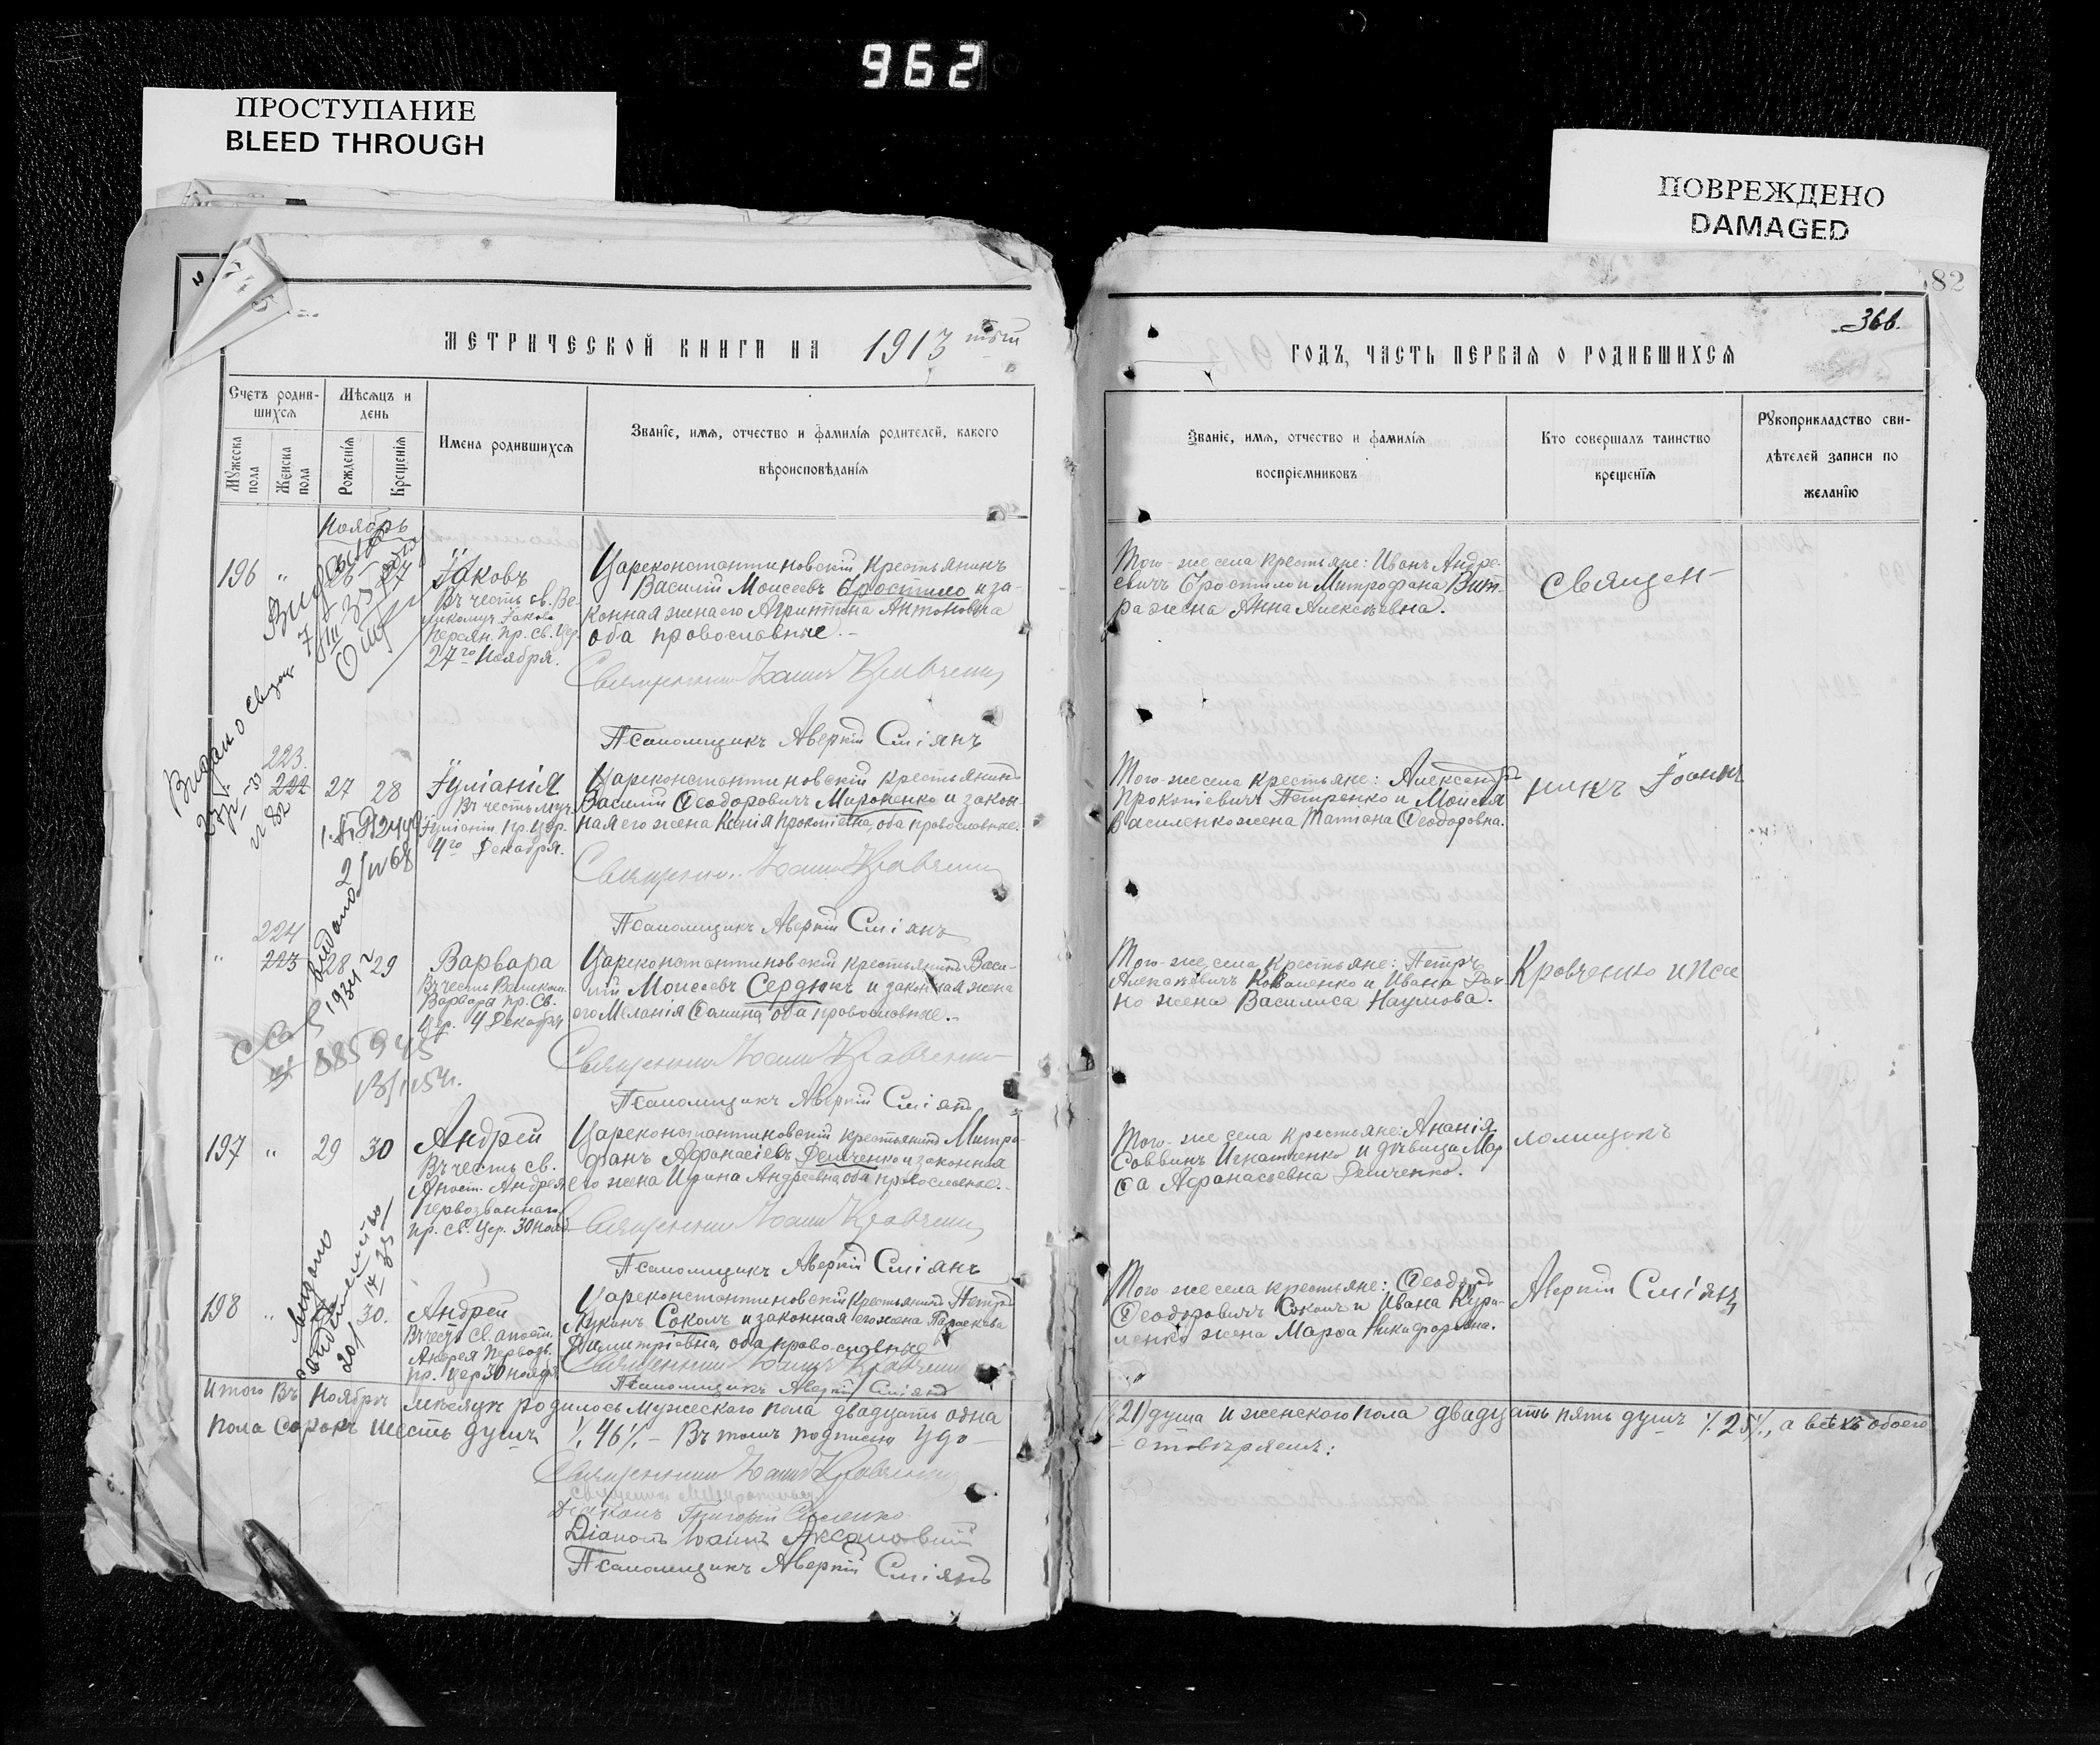 962
ПРОСТУПАНИЕ
BLEED THROUGH
ПОВРЕЖДЕНО
DAMAGED
82
366.
МЕТРИЧЕСКОЙ КНИГИ НА 1913
ГОДЪ, ЧАСТЬ ПЕРВАЯ О РОДИВШИХСЯ
Счетъ родив-
шихся
Мужеска пола
Женска пола
Мѣсяцъ и
день
Рожденія
Крещенія
Имена родившихся
Званіе, имя, отчество и фамилія родителей, какого
вѣроисповѣданія
Званіе, имя, отчество и фамилія
воспріемниковъ
Кто совершалъ таинство
крещенія
Рукоприкладство сви-
дѣтелей записи по
желанію
Ноябрь
196 " 27
Іаковъ
Въ честь св. Ве-
ликомуч. Іакова
Персян. пр. св. Цер.
27го Ноября.
Цареконстантиновскій Крестьянинъ
Василій Моисеевъ Бростило и за-
конная жена его Агрипина Антоновна
оба православные.-
Священникъ Іоаннъ Кравченко
Псаломщикъ Аверкій Сміянъ
Того-же села крестьяне: Иванъ Андре-
евичъ Бростило и Митрофана Вит-
ра жена Анна Алексѣевна.
Священ-
223.
222 27 28
Іуліанія
Въ честь муч.
Іуліаніи пр. Цер.
4го Декабря.
Цареконстантиновскій крестьянинъ
Василій Ѳеодоровичъ Мироненко и закон-
ная его жена Ксенія Прокопіевна, оба православные.
Священник. Іоаннъ Кравченко
Псаломщикъ Аверкій Сміянъ
Того-же села крестьяне: Александръ
Прокопіевичъ Петренко и Моисея
Василенко жена Татіана Ѳеодоровна.
никъ Іоаннъ
224
" 223 28 29
Варвара
Въ честь Великом.
Варвара пр. Св.
Цер. 4 Декабря
Цареконстантиновскій крестьянинъ Васи-
лій Моисеевъ Сердюкъ и законная жена
его Меланія Ѳомина, оба православные.-
Священникъ Іоаннъ Кравченко
Псаломщикъ Аверкій Сміянъ
Того-же села крестьяне: Петръ
Алексѣевичъ Коваленко и Ивана
жена Василиса Наумова.
Кравченко и Пса
197 " 29 30
Андрей
Въ честь св.
Апост. Андрея
Первозваннаго
пр. св. Цер. 30 нояб.
Цареконстантиновскій крестьянинъ Митро-
фанъ Афанасіевъ Демченко и законная
его жена Ирина Андреевна, оба православные.-
Священникъ Іоаннъ Кравченко
Псаломщикъ Аверкій Сміянъ
Того-же села крестьяне: Ананія
Саввинъ Игнатенко и дѣвица Мар
ѳа Афанасьевна Демченко.
ломщикъ
198 " 30.
Андрей
Въ честь св. апост.
Андрея Первозв.
пр. Цер 30 ноября
Цареконстантиновскій Крестьянинъ Петръ
Лукинъ Соколъ и законная его жена Параскева
Димитріевна, оба православные
Священникъ Іоаннъ Кравченко
Псаломщикъ Аверкій Сміянъ
Того же села крестьяне: Ѳеодоръ
Ѳеодоровичъ Соколъ и Ивана Кури-
ленко жена Марѳа Никифоровна.
Аверкій Сміянъ
Итого Въ Ноябрѣ мѣсяцѣ родилось Мужескаго пола двадцать одна
(21) душа и женскаго пола двадцать пять душъ ./. 25 ./., а всѣхъ обоего
пола Сорокъ шесть душъ ./. 46 ./. - Въ томъ подписью удо-
стовѣряемъ:
Священникъ Іоаннъ Кравченко
Діаконъ Григорій
Діаконъ Іоаннъ
Псаломщикъ Аверкій Сміянъ